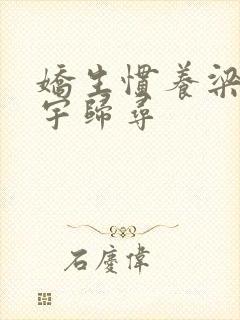 嬌生慣養梁
宇歸尋
石慶偉